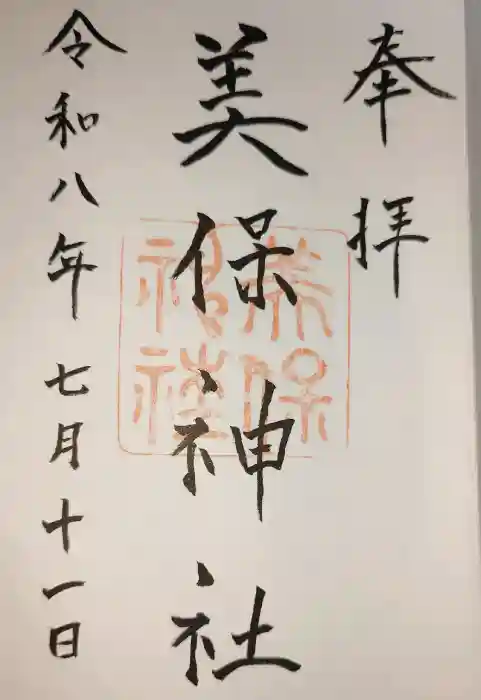 奉拝
美保神社
美保
神社
令和八年七月十一日